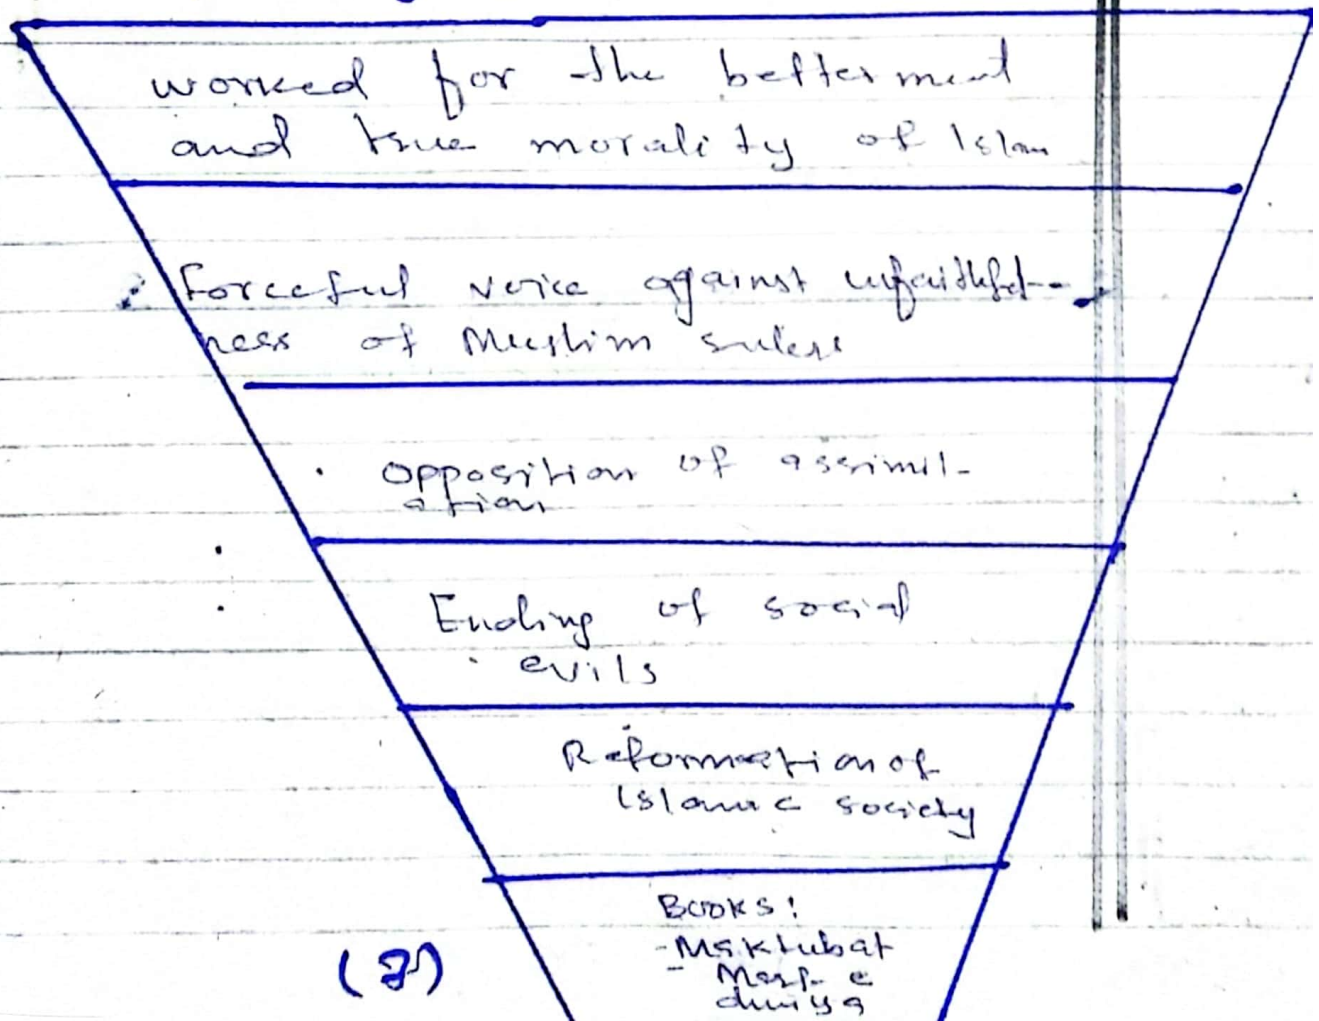 worked for the betterment
and true morality of Islam
Forceful voice against unfaithful-
ness of Muslim rulers
opposition of assimil-
ation
Ending of social
evils
Reformation of
Islamic society
Books:
- Maktubat
-
duniya